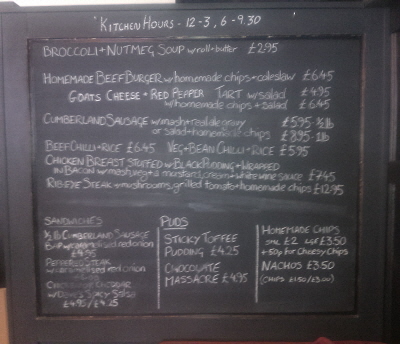 "KITCHEN HOURS - 12-3, 6-9.30
BROCCOLI + NUTMEG SOUP w/ roll + butter £2.95
HOMEMADE BEEF BURGER w/ homemade chips + coleslaw £6.45
GOATS CHEESE + RED PEPPER TART w/ salad £4.95
w/ homemade chips + salad £6.45
CUMBERLAND SAUSAGE w/ mash + real ale gravy £5.95 ½lb
or salad + homemade chips £8.95 1lb
BEEF CHILLI + RICE £6.45 VEG + BEAN CHILLI + RICE £5.95
CHICKEN BREAST STUFFED w/ BLACK PUDDING + WRAPPED
IN BACON w/ mash, veg + a mustard, cream + white wine sauce £7.45
RIBEYE STEAK + mushrooms, grilled tomato + homemade chips £12.95
SANDWICHES
½ lb CUMBERLAND SAUSAGE
BAP w/ caramelised red onion
£4.95
PEPPERED STEAK
w/ caramelised red onion
£4.95
CHEDDAR
w/ Dave's Spicy Salsa
£4.95 / £4.25
PUDS
STICKY TOFFEE
PUDDING £4.25
CHOCOLATE
MASSACRE £4.95
HOMEMADE CHIPS
SML £2 LGE £3.50
+50p for Cheesy Chips
NACHOS £3.50
(CHIPS £1.50/£3.00)